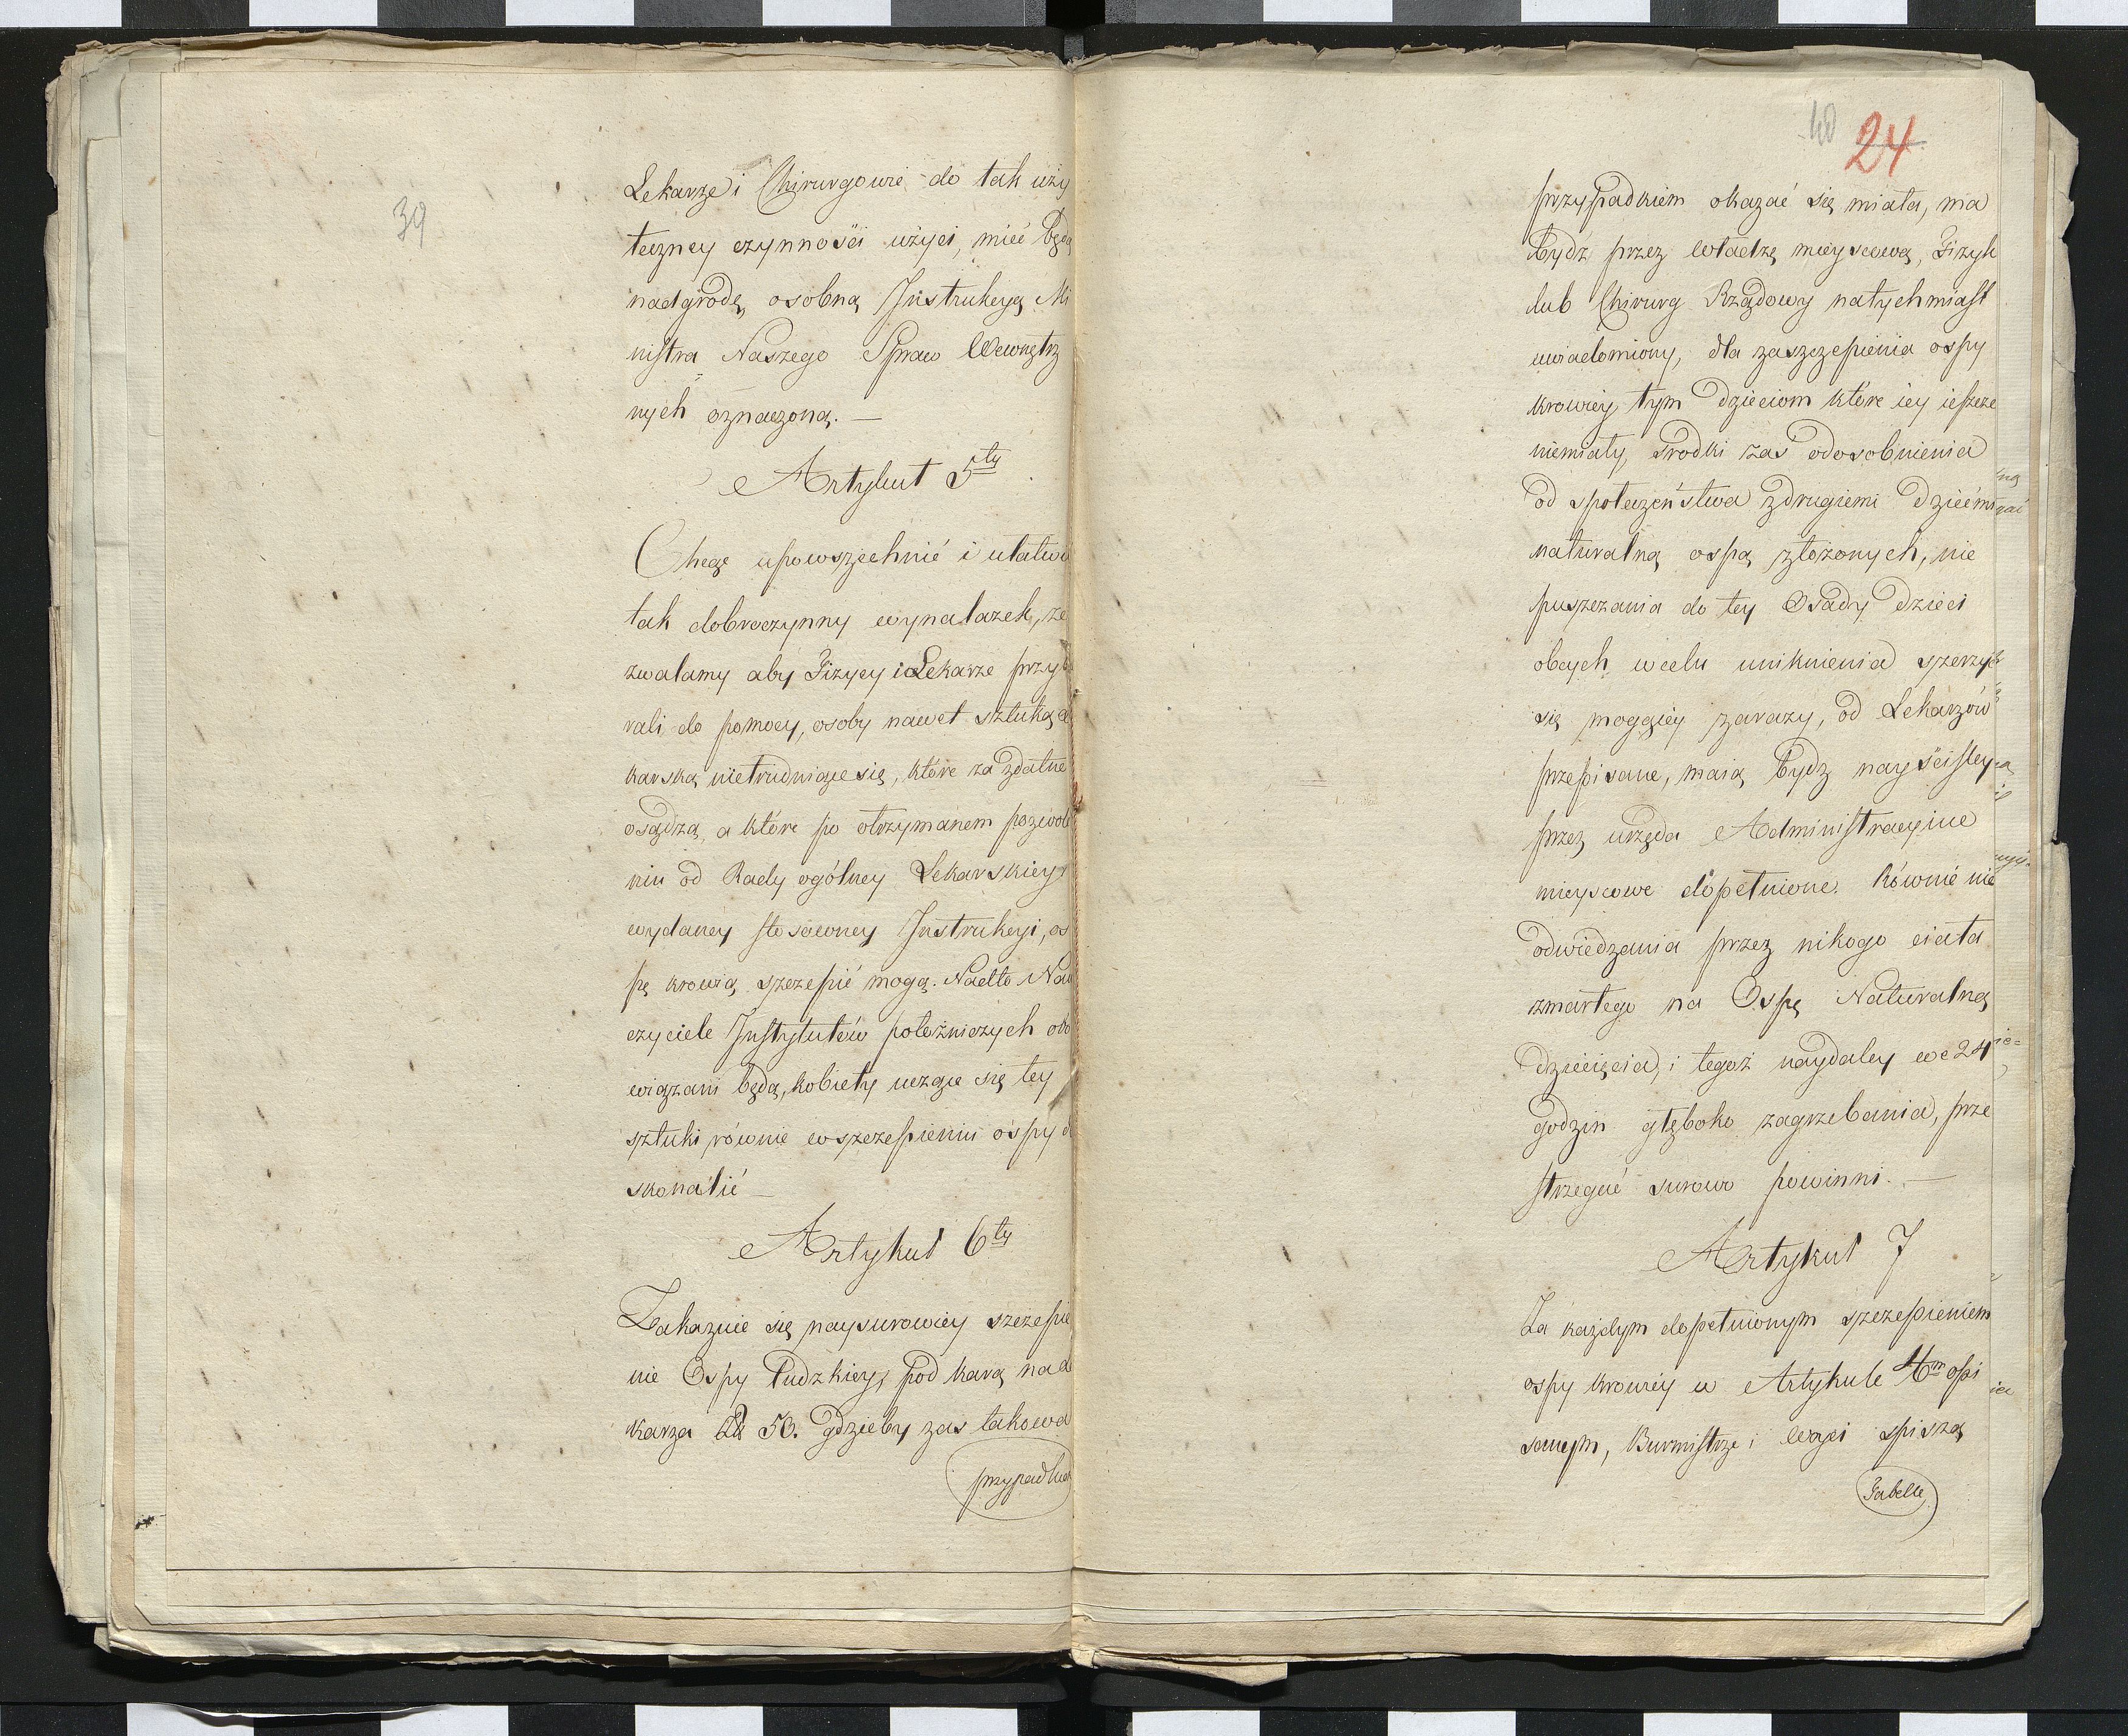 39
Lekarze i Chirurgowie do tak uży
teczney czynności użyci, mieć będą
nadgrodę, osobną Instrukcyą Mi
nistra Naszego Spraw Wewnętrz
nych oznaczoną. —
Artykuł 5ty
Chcąc upowszechnić i ułatwi
tak dobroczynny wynalazek, ze
zwalamy aby Fizycy i Lekarze przyb
rali do pomocy, osoby nawet sztuką
karską nietrudniące się, które za zdatne
osądzą, a które po otrzymanem pozwole
niu od Rady ogólney Lekarskiey
wydaney stosowney Instrukcyi, os
pę krowią szczepić mogą. Nadto Nau
czyciele Instytutów położniczych obo
wiązani będą, kobiety uczące się tey
sztuki równie w szczepieniu ospy d
skonalić —
Artykuł 6ty
Zakazuie się naysurowiey szczepie
nie Ospy ludzkiey, pod karą na
karza 50. gdzieby zas takowa
przypadkiem
40 24
przypadkiem okazać się miała, ma
bydź przez władzę mieyscową, Fizyk
lub Chirurg Rządowy natychmiast
uwiadomiony, dla zaszczepienia ospy
krowiey tym dzieciom które iey ieszcze
niemiały, srodki zas odosobnienia
od społeczeństwa z drugiemi dziećmi
naturalną ospą złożonych, nie
puszczania do tey Osady dzieci
obcych w celu uniknienia szerzyć
się mogącey zarazy, od Lekarzów
przepisane, maią bydz nayściśley
przez urzęda Administracyine
mieyscowe dopełnione. Równie nie
odwiedzania przez nikogo ciała
zmarłego na Ospę Naturalną
dziecięcia, i tegoż naydaley we 24
godzin głęboko zagrzebania, prze
strzegać surowo powinni. —
Artykuł 7
Za każdym dopełnionym szczepieniem
ospy krowiey w Artykule 4m opi
sanym, Burmistrze i Wóyci spiszą
Tabelle